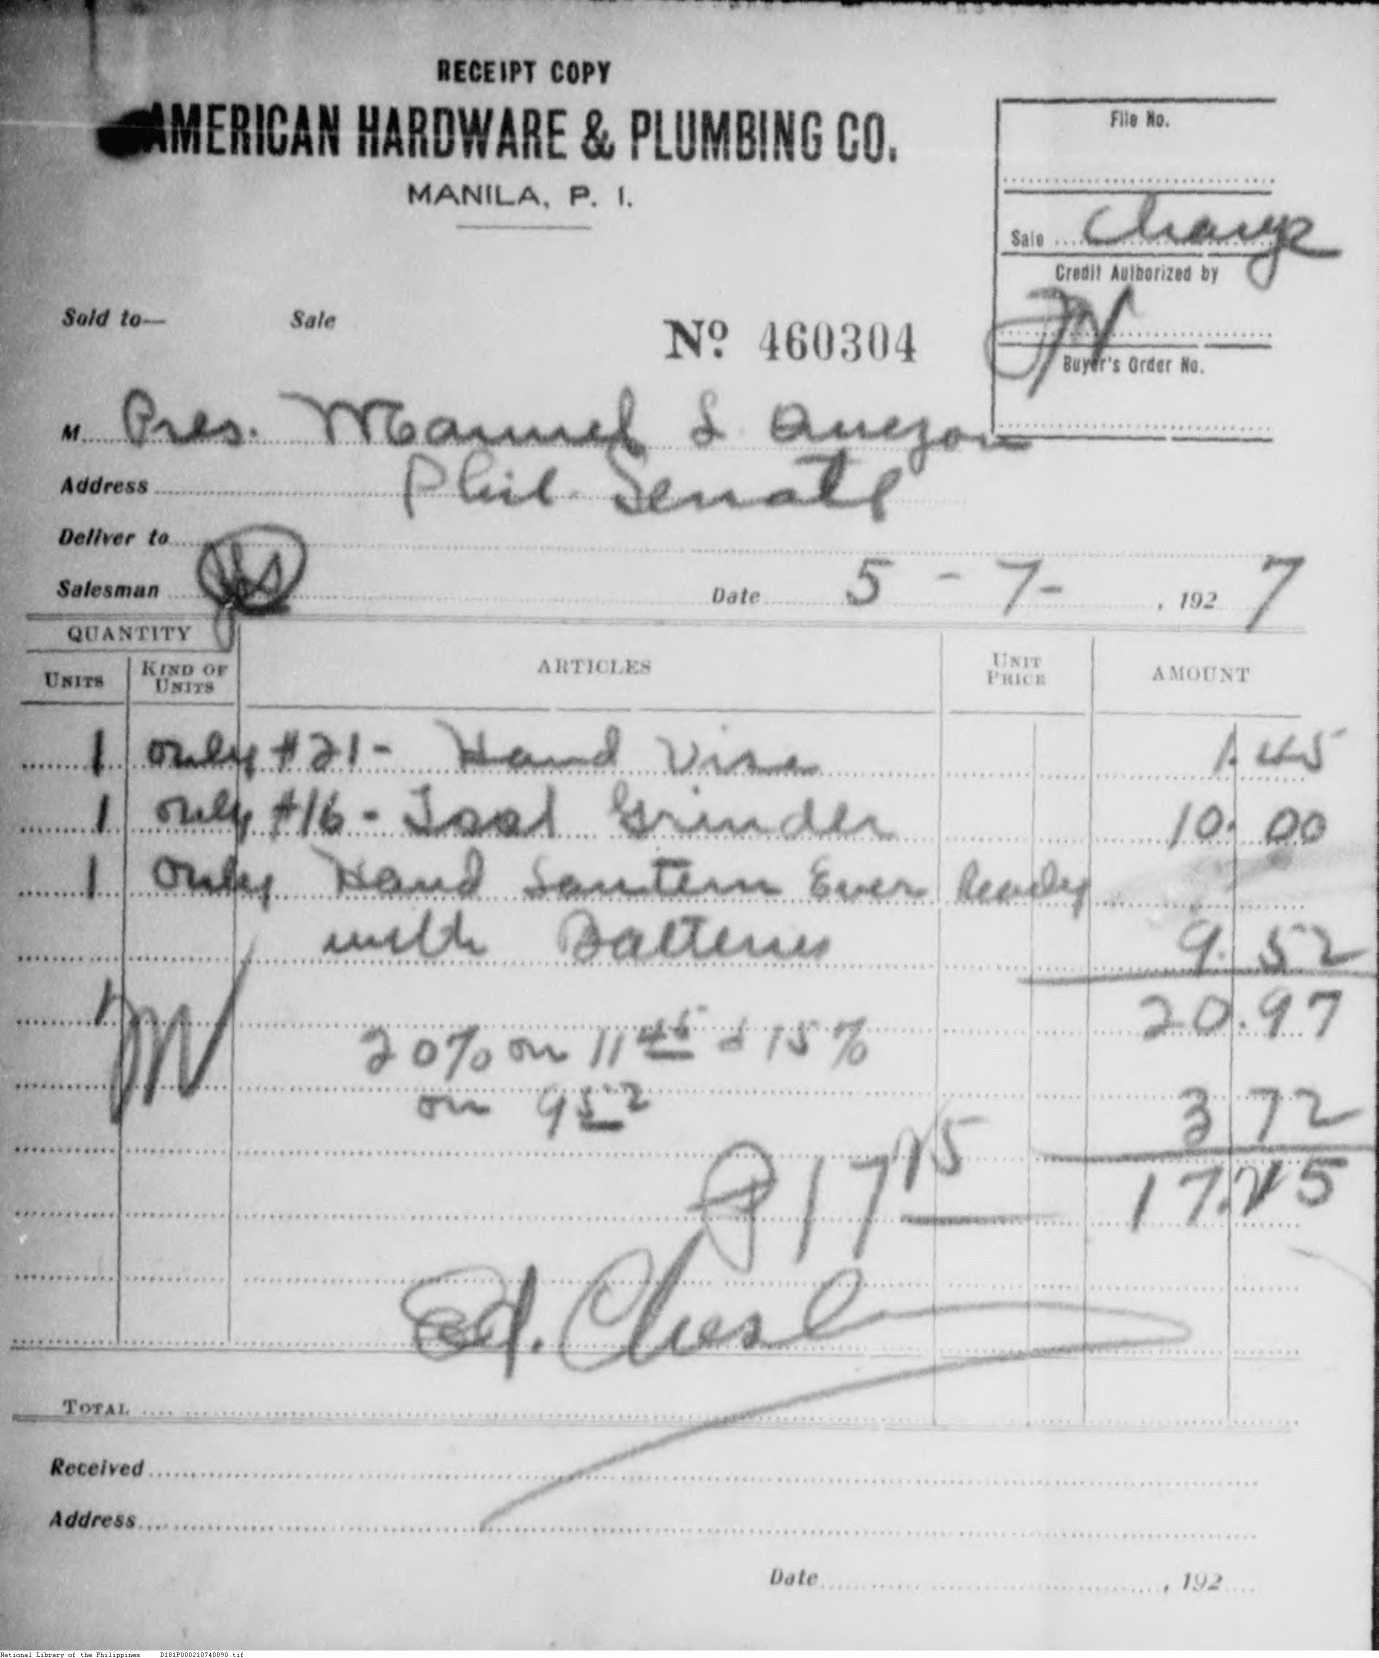 RECEIPT COPY
AMERICAN HARDWARE & PLUMBING CO.
MANILA, P. I.
File No.
Sale Charge
Credit Authorized by
Buyer's Order No.
Sold to— Sale
Nº 460304
M Pres. Manuel L Quezon
Address Phil. Senate
Deliver to
Salesman
Date 5-7-, 1927
QUANTITY
UNITS KIND OF UNITS ARTICLES UNIT PRICE AMOUNT
1 only #21- Hand Vise 1.45
1 only #16- Tool Grinder 10.00
1 only Hand Lantern Ever Ready
with Batteries 9.52
20.97
20% on 11 45 & 15%
on 9 52 3 72
₱17 25 17.25
Ed. Chesl
TOTAL
Received
Address
Date , 192
National Library of the Philippines D181P000210740090.tif